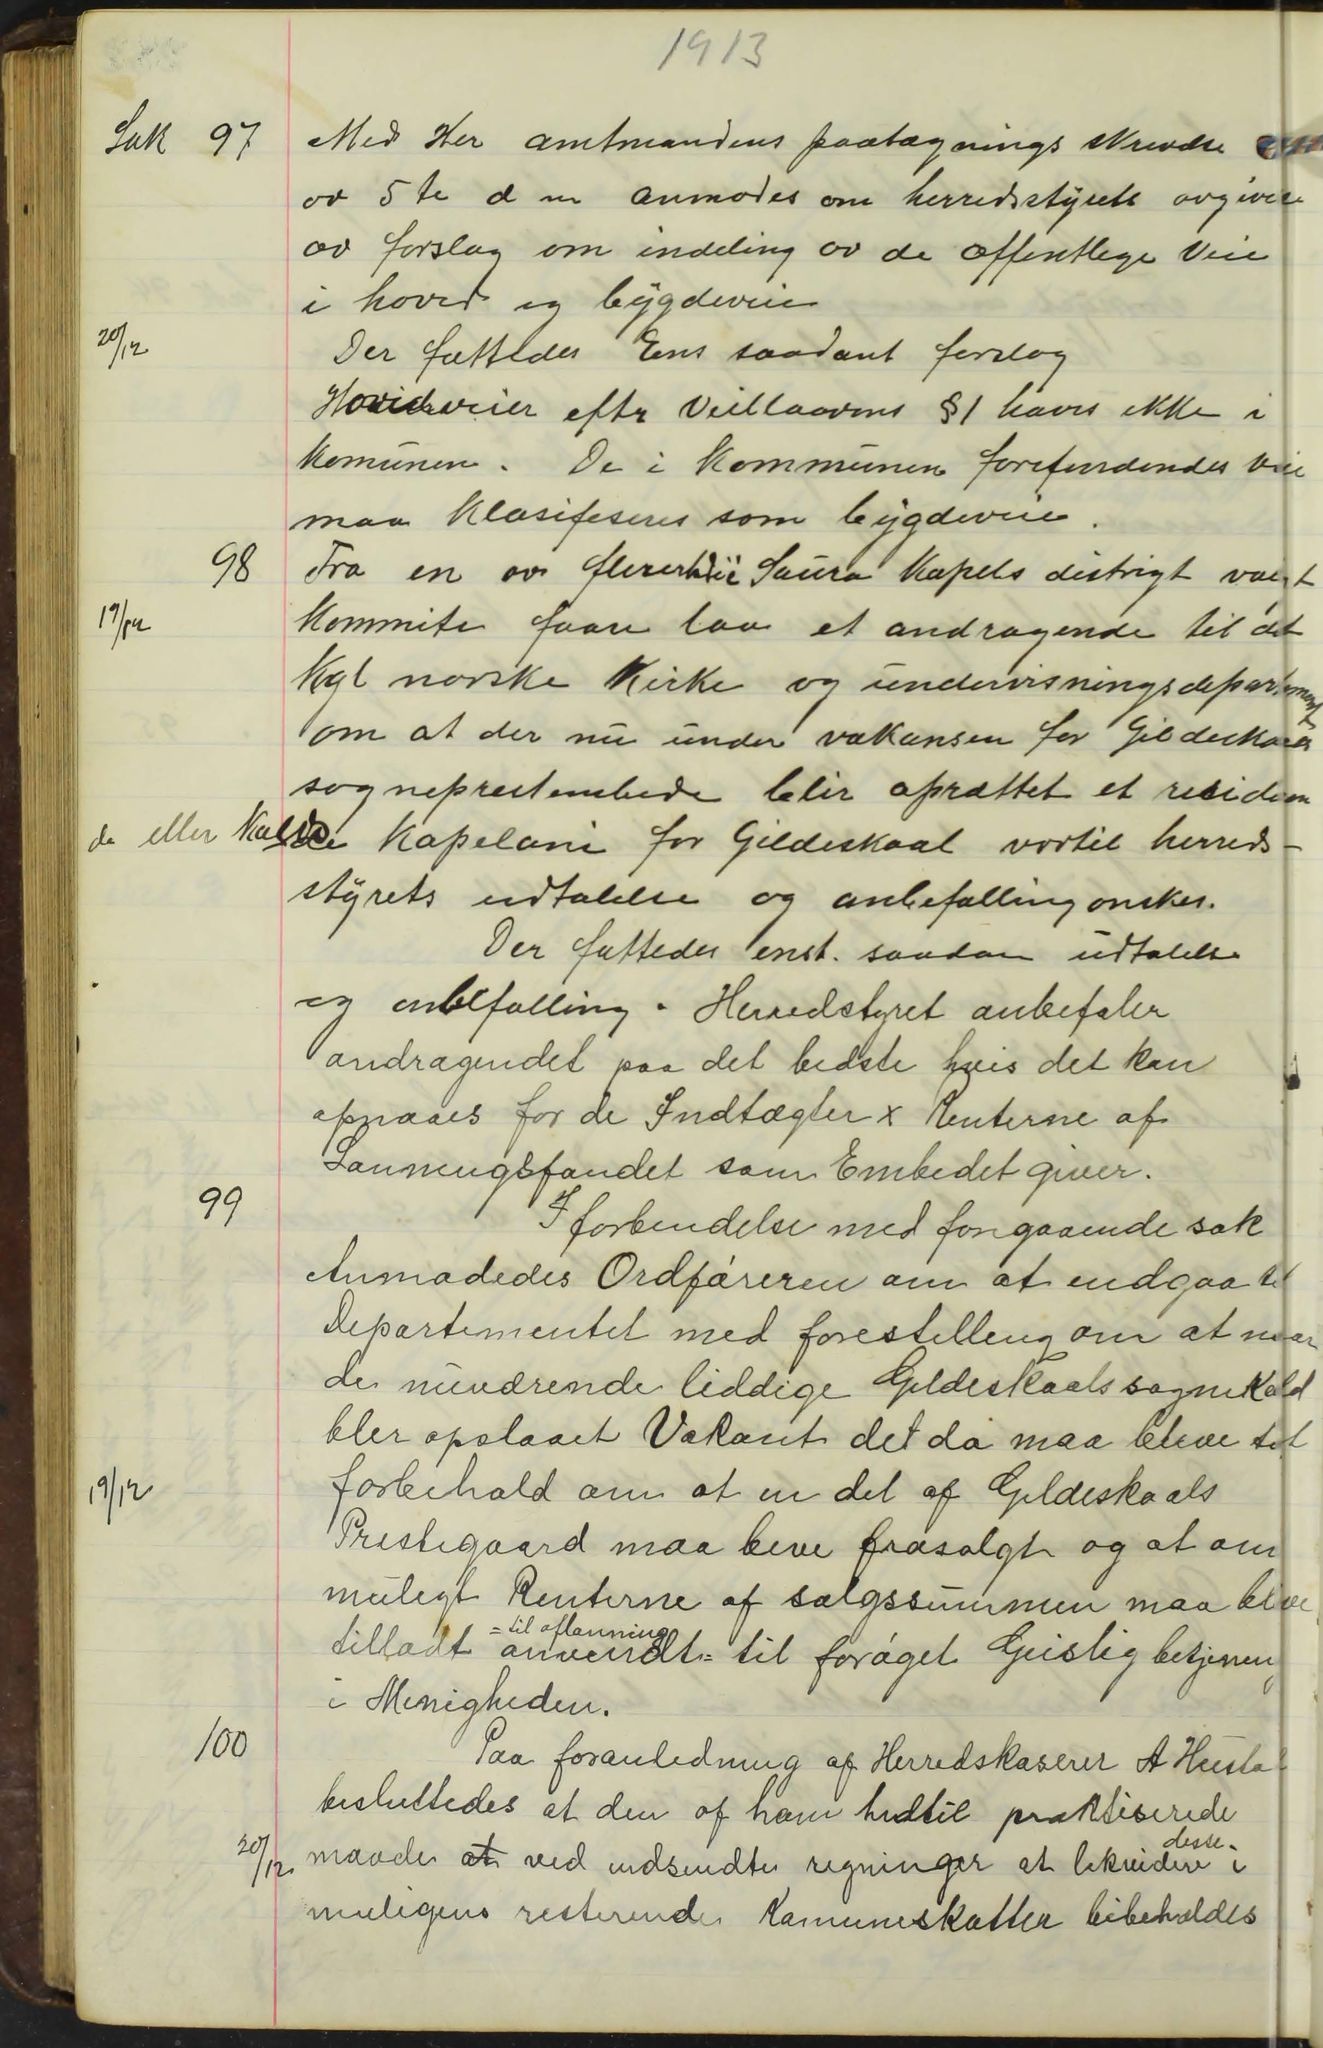 1913
Sak 97 Med Her amtmandens paategnings skrivelse
av 5te d m anmodes om herredsstyrets avgivelse
av forslag om indeling av de offentlege Veie
i hoved og bygdeveie
20/12 Der fattedes Ens saadant forslag
Hovedveier eftr Veillaavens § 1 haves ikke i
Komunen. De i Kommunen forefundendes Veie
maa Klasifeseres som bygdeveie.
98 Fra en av flere Saura Kapels distrigt valgt
19/12 Kommite faare laa et andragende til det
Kgl norske Kirke og undervisningsdepartement
om at der nu under vakansen for Gildeskaal
sogneprestembede blir oprættet et residerende
de eller Kaldes Kapelani for Gildeskaal vortil herreds-
styrets udtalelse og anbefalling ønskes.
Der fattedes enst. saadan udtalelse
og anbefalling. Herredstyret anbefaler
andragendet paa det bedste hvis det kan
opnaaes for de Indtægter x Renterne af
Lønningsfondet som Embedet giver.
99 I forbindelse med forgaaende sak
Anmodedes Ordføreren om at indgaa til
Departementet med forestilling om at naar
de nuværende liddige Gildeskaals sognekald
bler opslaaet Vakant det da maa bleve tat
19/12 forbehold om at en del af Gildeskaals
Prestegaard maa bleve frasolgt og at om
muligt Renterne af salgssummen maa blive
= til aflønning
tilladt anvendt = til forøget Geistlig betjening
i Menigheden.
100 Paa foranledning af Herredskaserer A
besluttedes at den af ham hidtil praktiserede
desse
20/12 maade at ved indsendte regninger at likvidere i
muligens resterende Kamuneskatter bibeholdes